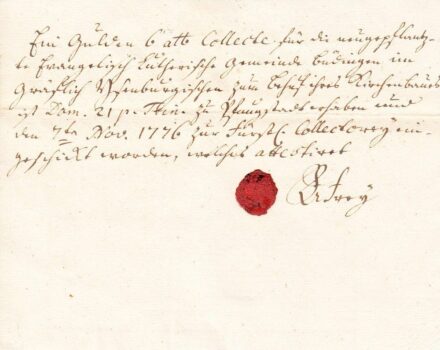 Ein Gulden 6 alb Collecte für die neugepflantz-
te Evangelisch Lutherische Gemeinde Büdingen im
Gräflich Ysenburgischen zum Behuf ihres Kirchenbaues
ist Dom. 21 p. Trin. zu erhoben und
den 7ten Nov. 1776 zur Fürstl. Collectorey ein-
geschickt worden, welches attestiret
Frey